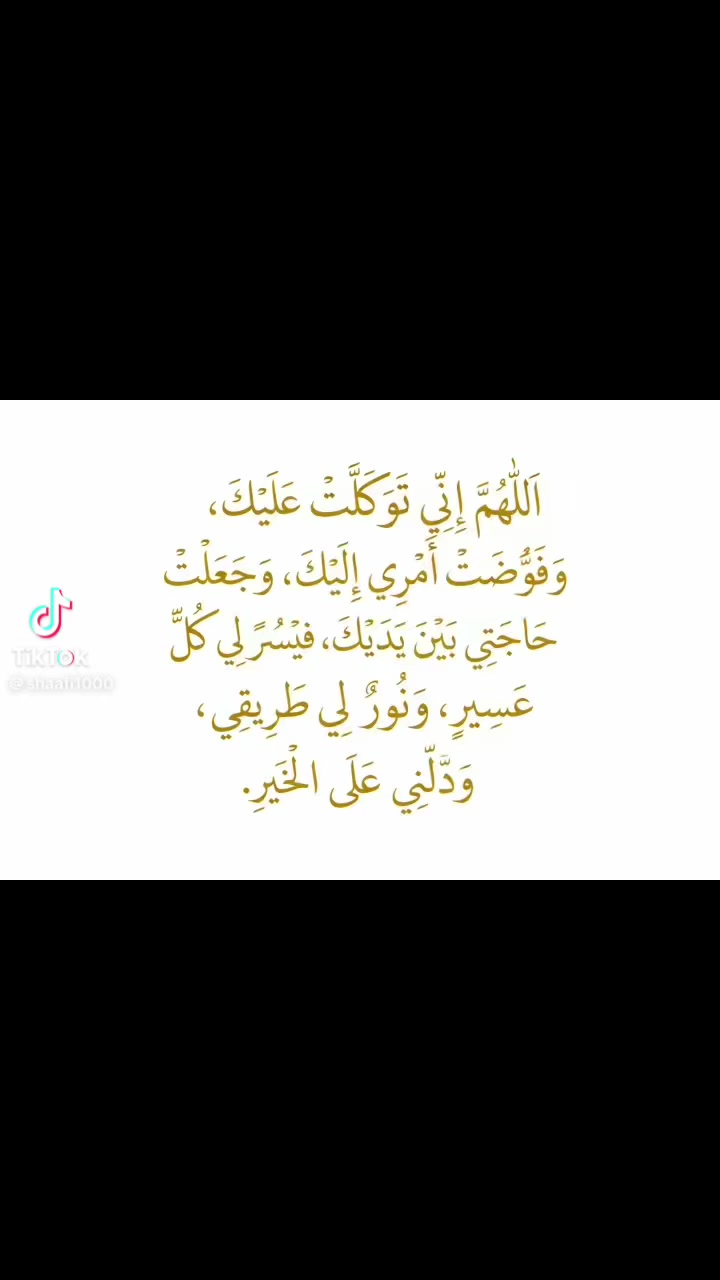 اَللّٰهُمَّ إِنِّي تَوَكَلَّتْ عَلَيْكَ،
وَفَوُّضَتْ أَمْرِي إِلَيْكَ، وَجَعَلْتْ
حَاجَتِي بَيْنَ يَدَيْكَ، فيْسُرً لِي كُلّ
عَسِيرٍ، وَنُورٌ لِي طَرِيقِي،
وَدَّلّنِي عَلَى الْخَيرِ.
TikTok
@shaafi1000